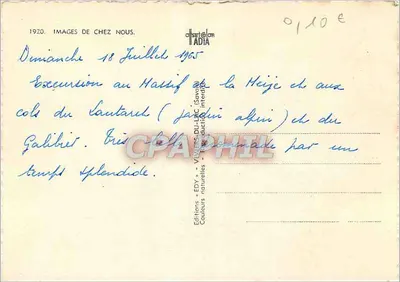 1920. IMAGES DE CHEZ NOUS.
ADIA
0,10 €
Dimanche 18 Juillet 1965
Excursion au Massif de la Meije et aux
cols du Lautaret ( jardin alpin ) et du
Galibier. Très belle promenade par un
temps splendide.
CPARPHIL
Editions « EDY » - VIVIERS-DU-LAC (Savoie)
Couleurs naturelles - Reproduction interdite